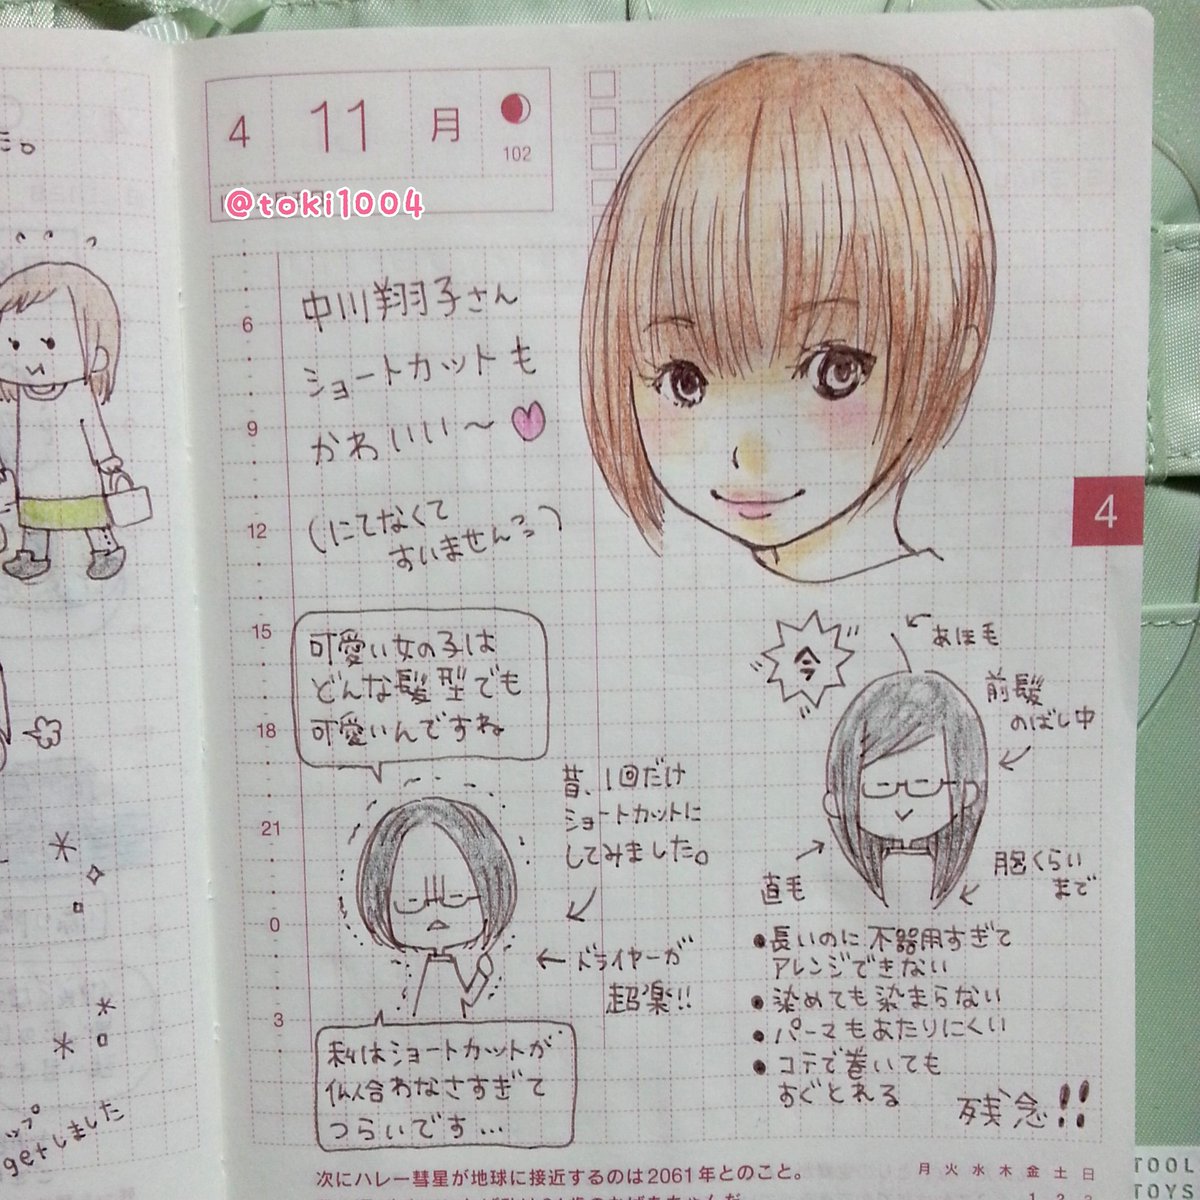 た。
getしました
4 11 月
102
@toki1004
6
9
12
15
18
21
0
3
中川翔子さん
ショートカットも
かわいい〜
(にてなくて
すいません)
4
可愛い女の子は
どんな髪型でも
可愛いんですね
昔、1回だけ
ショートカットに
してみました。
ドライヤーが
超楽!!
私はショートカットが
似合わなさすぎて
つらいです…
今
あほ毛
前髪
のばし中
直毛
胸くらい
まで
●長いのに不器用すぎて
アレンジできない
●染めても染まらない
●パーマもあたりにくい
●コテで巻いても
すぐとれる
残念!!
次にハレー彗星が地球に接近するのは2061年とのこと。
月 火 水 木 金 土 日
1 2 3
TOOL
TOYS